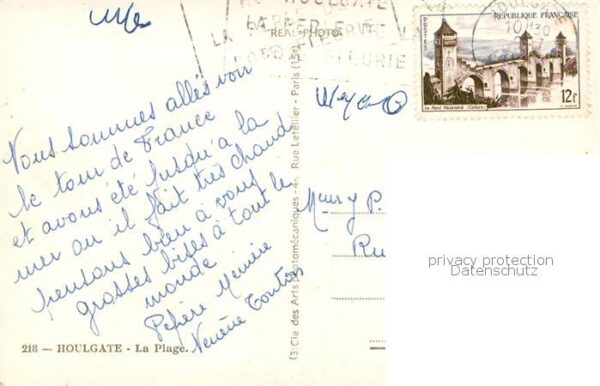 HOULGATE
LA PERLE
LA
FLEURIE
REAL-PHOTO
RÉPUBLIQUE FRANÇAISE
POSTES
10 H 30
Le Pont Valentré (Cahors)
12F
Nous sommes allés voir
le tour de France
et avons été jusqu'a la
mer ou il fait très chaud
pensons bien à vous
grosses bises à tout le
monde
Pépère Mémère
Tonton
(3) Cie des Arts Photomécaniques - 4, Rue Letellier - Paris (15e)
Ru
privacy protection
Datenschutz
218 — HOULGATE - La Plage.